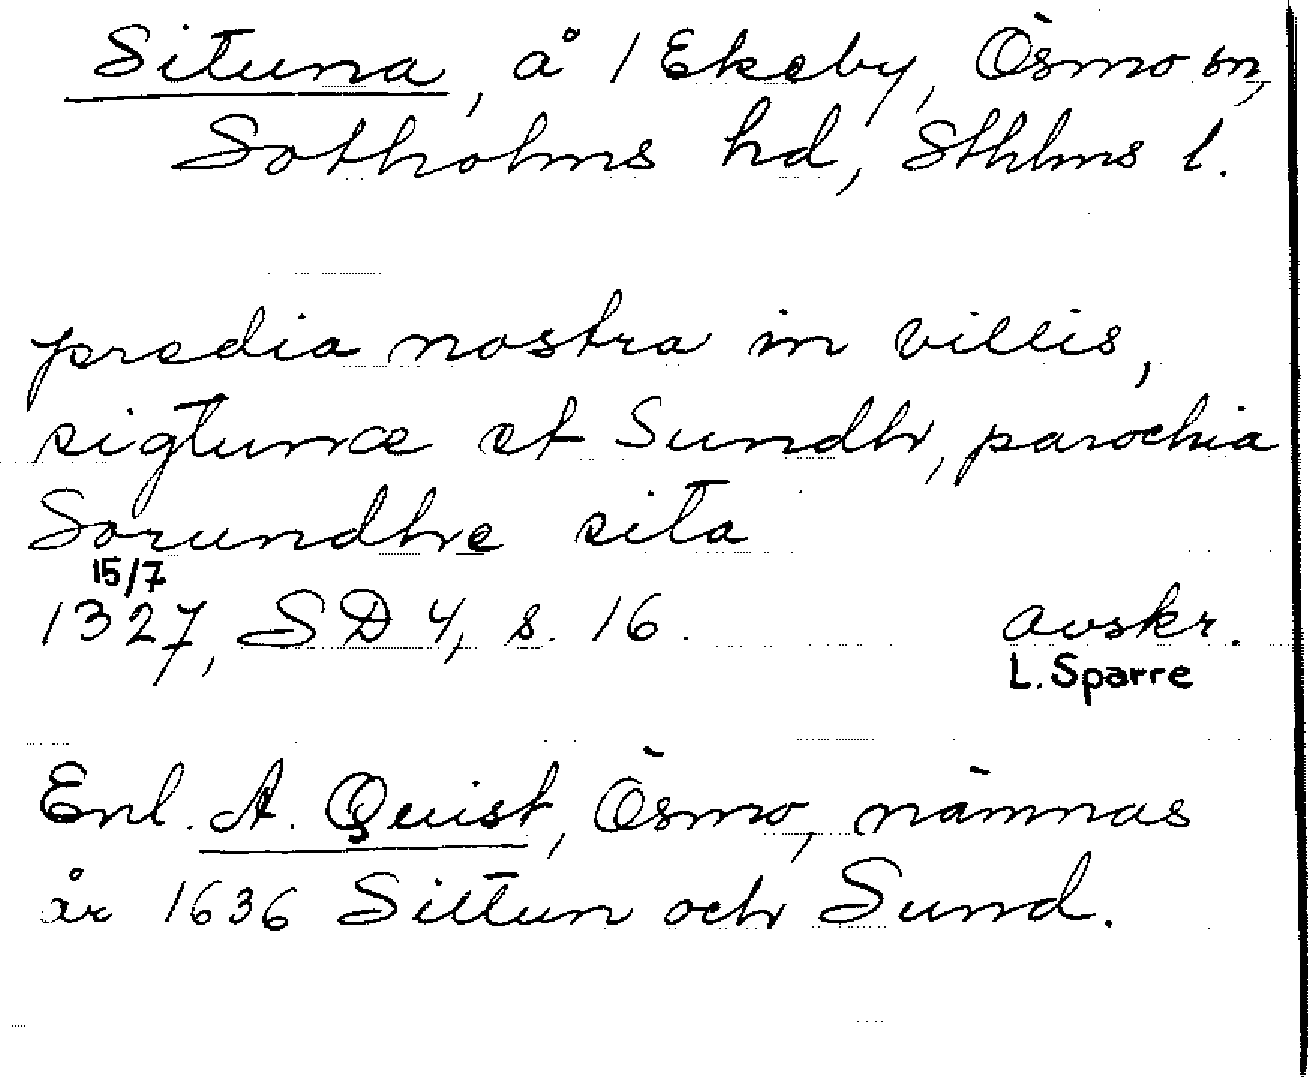 Situna, å / Ekeby, Ösmo sn,
Sotholms hd, Sthlms l.
predia nostra in villis,
sigtunæ et Sundh, parochia
Sorundhe sita
15/7
1327, SD 4, s. 16. avskr.
L. Sparre
Enl. A. Quist, Ösmo, nämnas
år 1636 Sittun och Sund.